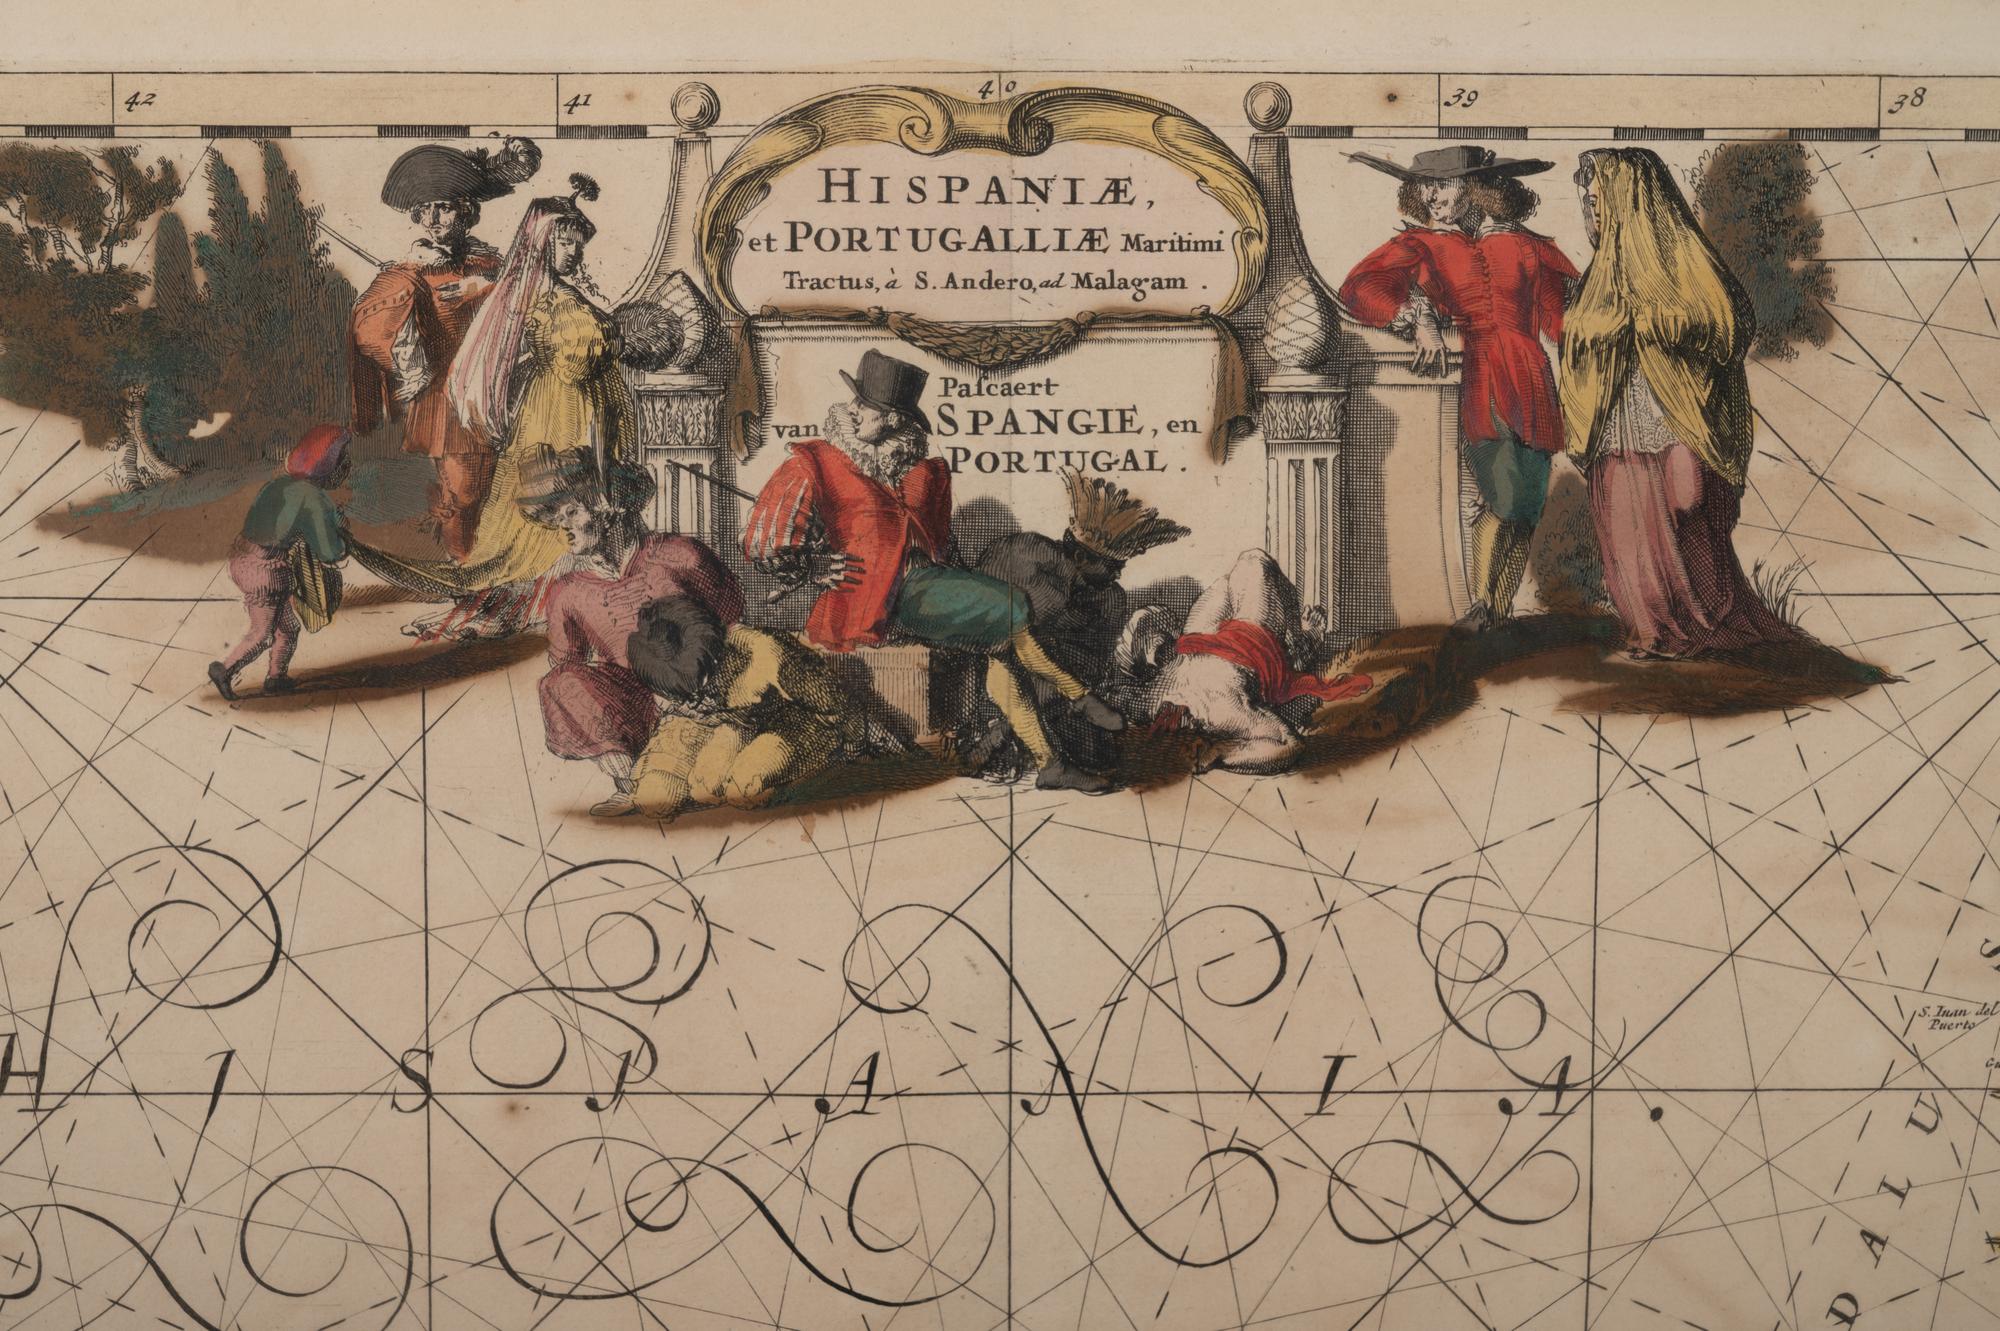 42 41 40 39 38
HISPANIÆ,
et PORTUGALLIÆ Maritimi
Tractus, à S. Andero, ad Malagam.
Paſcaert
van SPANGIE, en
PORTUGAL.
S. Iuan del
Puerto
HISPANIA.
DALU